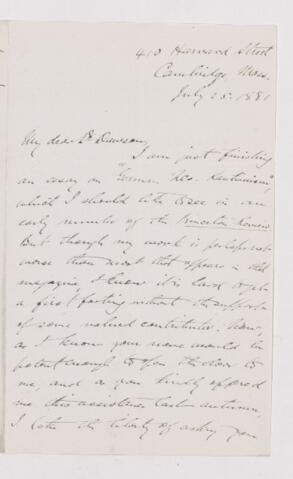 410 Harvard Street
Cambridge, Mass.
July 25. 1881
My dear Dr Dawson,
I am just finishing
an essay on "German Neo-Kantianism",
which I should like to see in an
early number of the Princeton Review
But though my work is perhaps not
worse than most that appears in that
magazine I know it is hard to get
a first footing without the support
of some valued contributor. Now,
as I know your name would be
potent enough to open the door to
me, and as you kindly offered
me this assistance last autumn,
I take the liberty of asking you